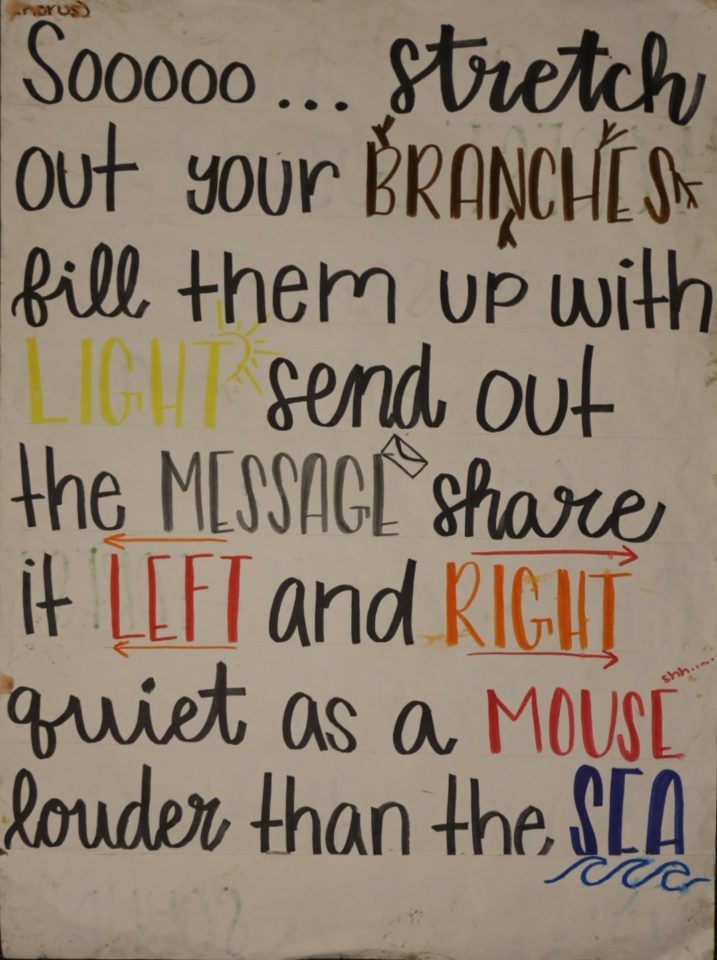 (chorus)
Sooooo... stretch
out your BRANCHES
fill them up with
LIGHT send out
the MESSAGE share
it LEFT and RIGHT
shh.....
quiet as a MOUSE
louder than the SEA